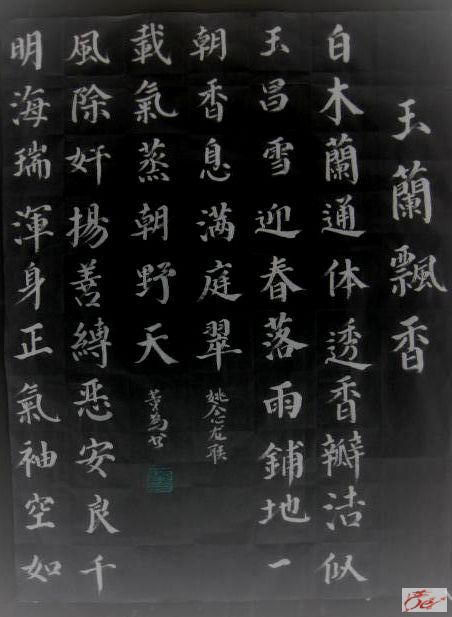 玉蘭飄香
白木蘭通体透香瓣洁似
玉昌雪迎春落雨鋪地一
朝香息满庭翠
明海瑞渾身正氣袖空如
風除奸揚善縛恶安良千
載氣蒸朝野天